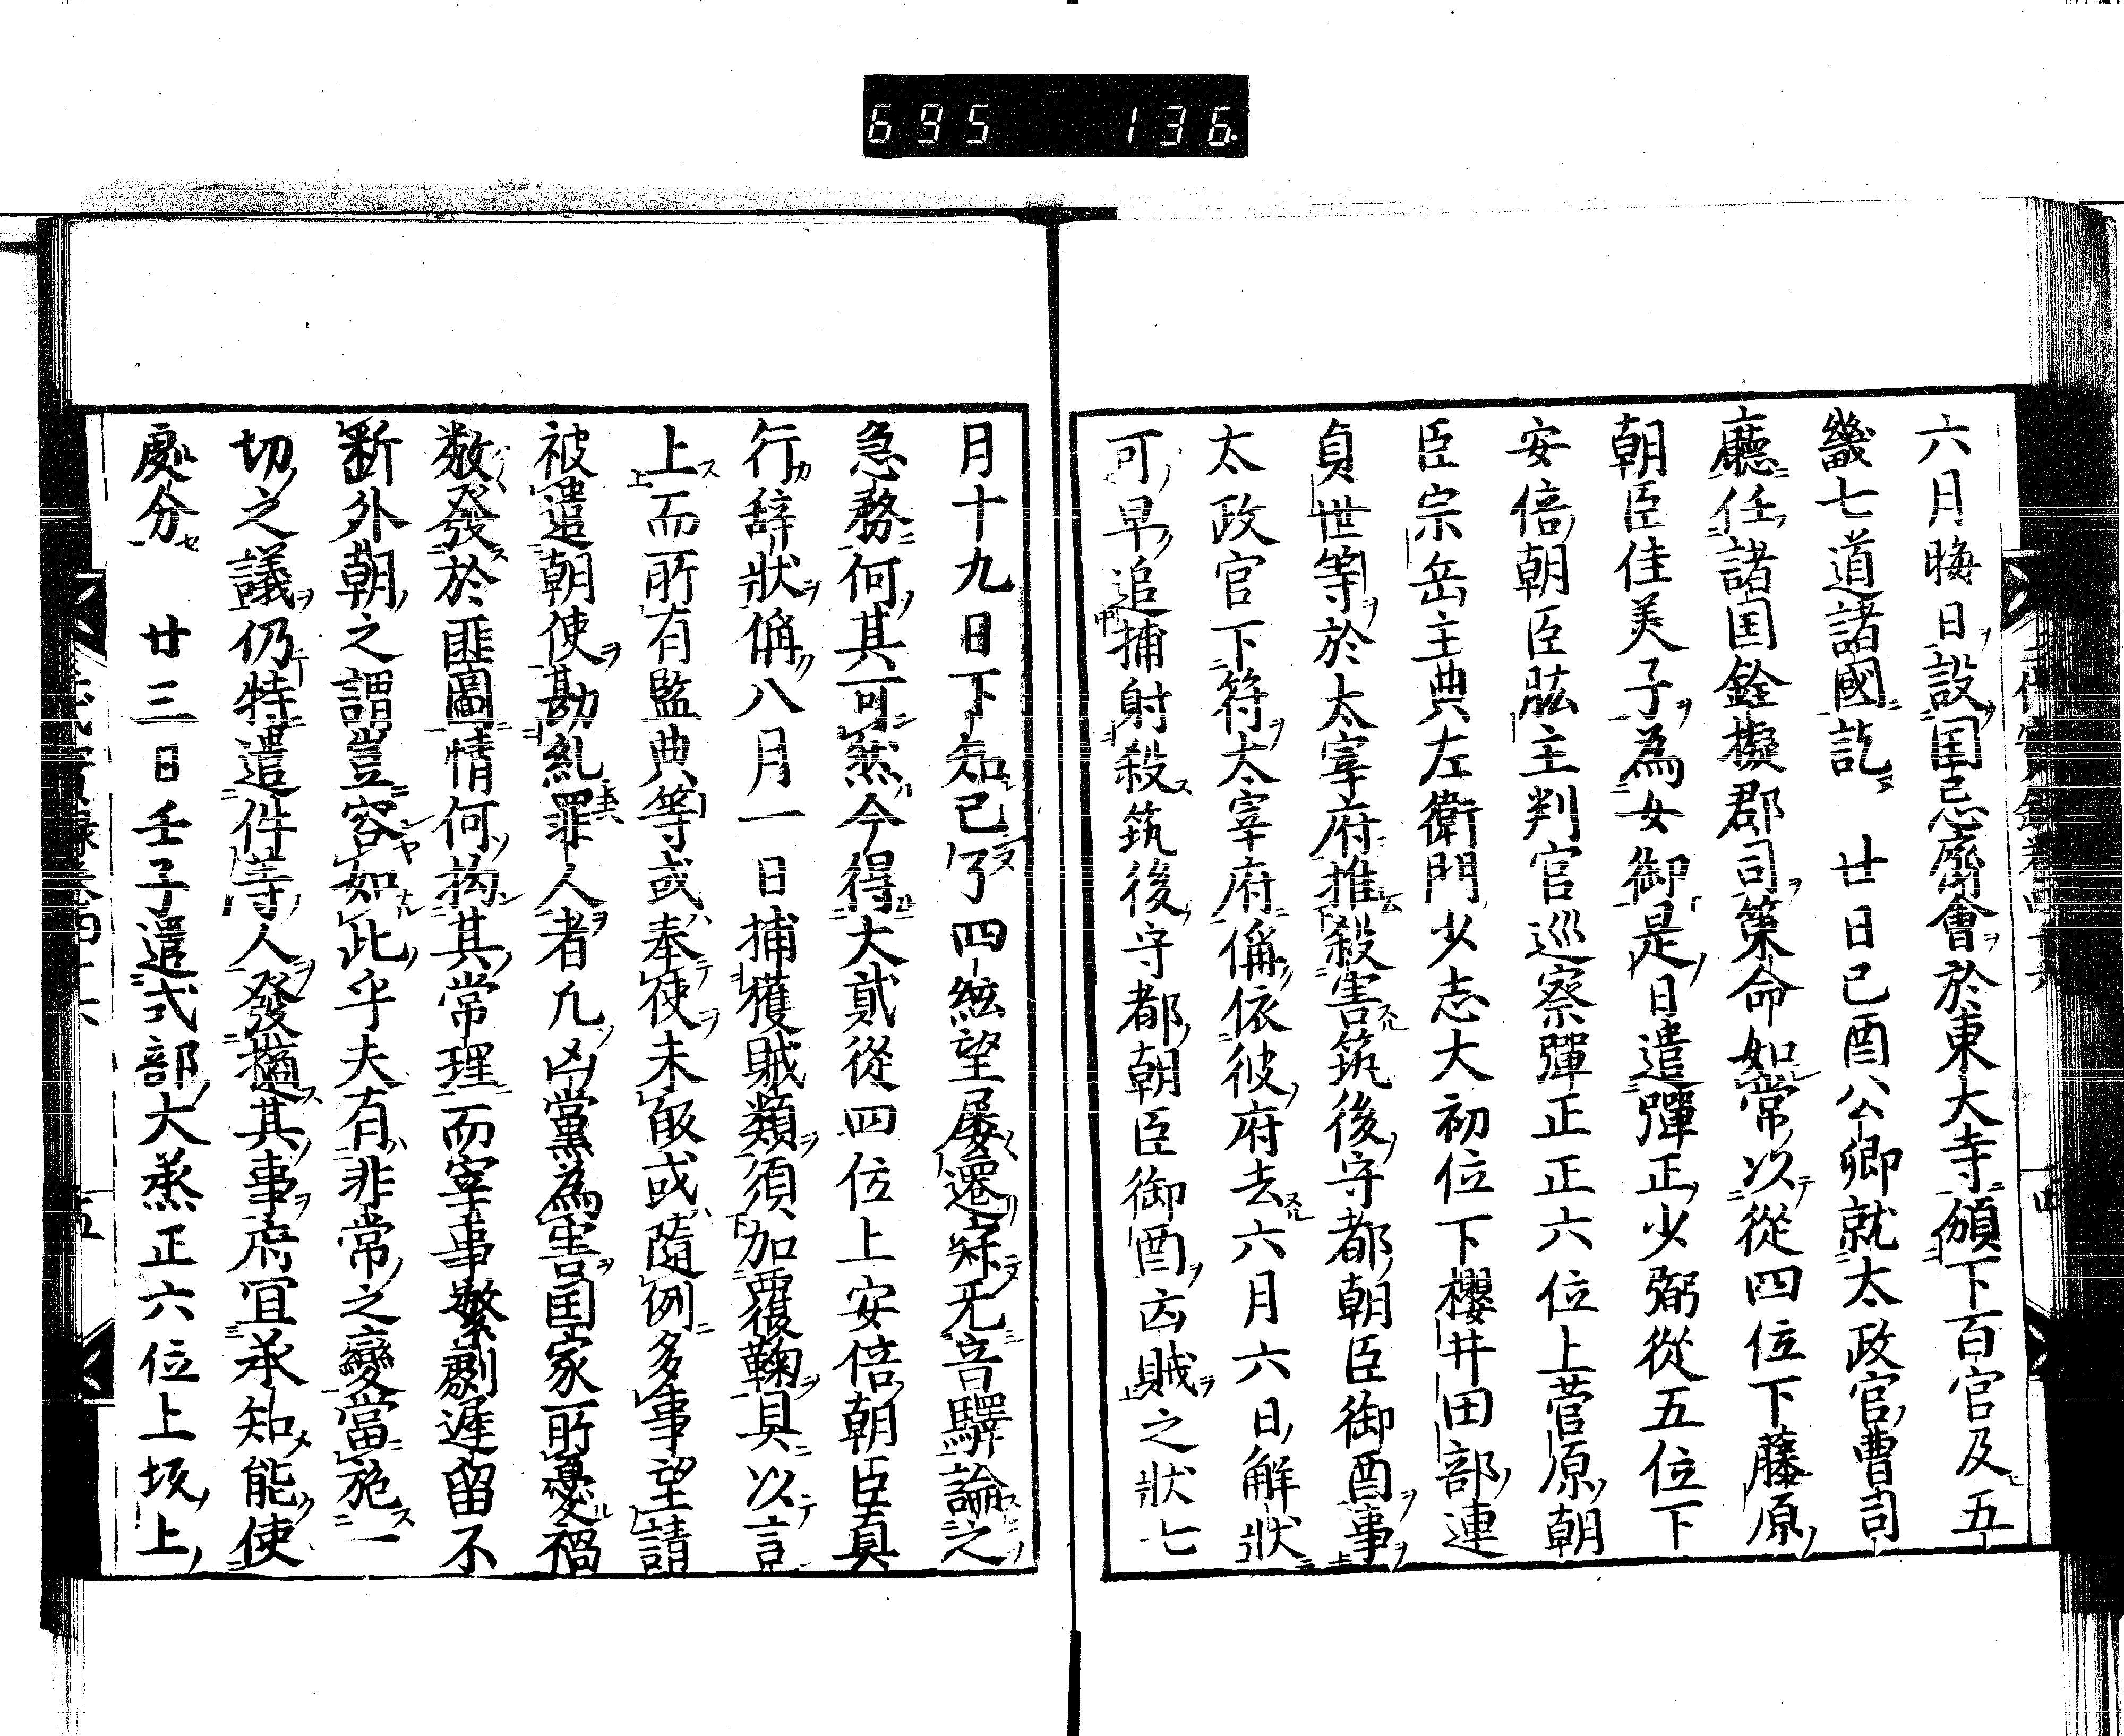 695 136
六月晦日設国忌齋會於東大寺頒下百官及五
畿七道諸國訖 廿日己酉公卿就太政官曹司
廳任諸国銓擬郡司策命如常以從四位下藤原
朝臣佳美子為女御是日遣彈正少弼從五位下
安倍朝臣肱主判官巡察彈正正六位上菅原朝
臣宗岳主典左衛門少志大初位下櫻井田部連
貞世等於太宰府推殺害筑後守都朝臣御酉事
太政官下符太宰府偁依彼府去六月六日解狀
可早追捕射殺筑後守都朝臣御酉亡賊之狀七
月十九日下知已了四絃望屡還寂无音驛論之
急務何其可然今得大貳從四位上安倍朝臣真
行辞狀偁八月一日捕獲賊類須加覆鞠具以言
上而所有監典等或奉使未皈或隨例多事望請
被遣朝使勘糺罪人者凡凶黨為害国家所憂禍
敷發於匪圖情何拘其常理而宰事繁劇遅留不
断外朝之謂豈容如此乎夫有非常之變當施一
切之議仍特遣件等人發擿其事府宜承知能使
處分 廿三日壬子遣式部大丞正六位上坂上